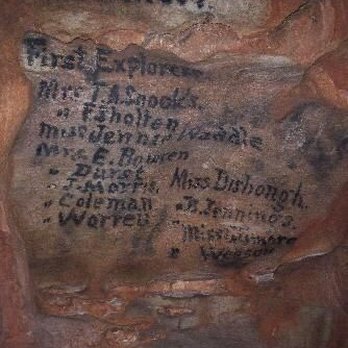 First Explorers
Mrs T.A. Snooks.
" F. Sholten
Miss Jennie Waddle
Mrs E. Bowren
" Durst
" J. Morris. Miss Dishongh.
" Coleman " B. Jennings.
" Warren " Miss
"